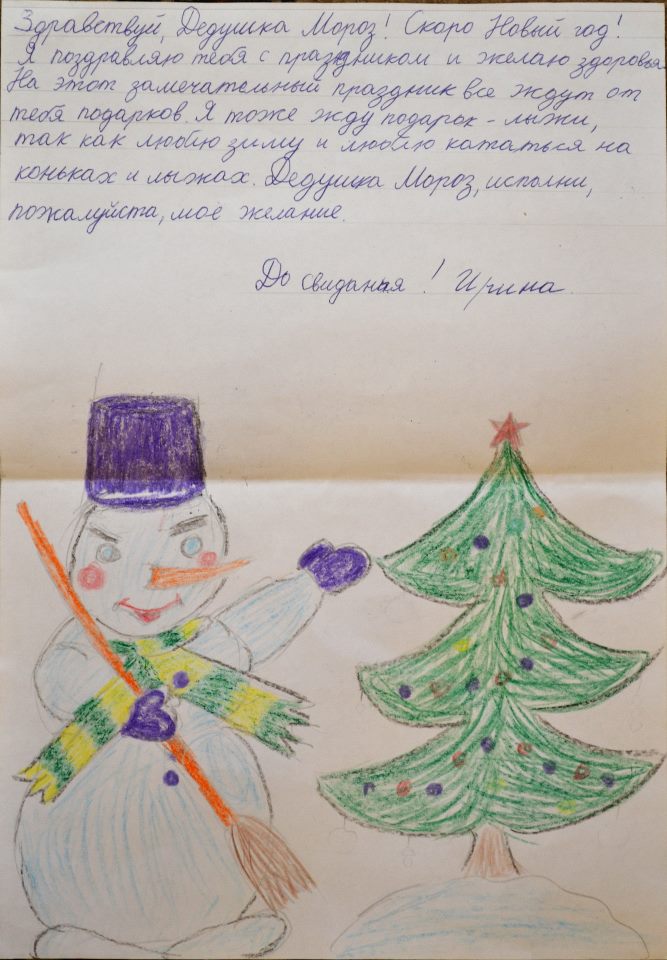 Здравствуй, Дедушка Мороз! Скоро Новый год!
Я поздравляю тебя с праздником и желаю здоровья.
На этот замечательный праздник все ждут от
тебя подарков. Я тоже жду подарок - лыжи,
так как люблю зиму и люблю кататься на
коньках и лыжах. Дедушка Мороз, исполни,
пожалуйста, мое желание.
До свиданья! Ирина.